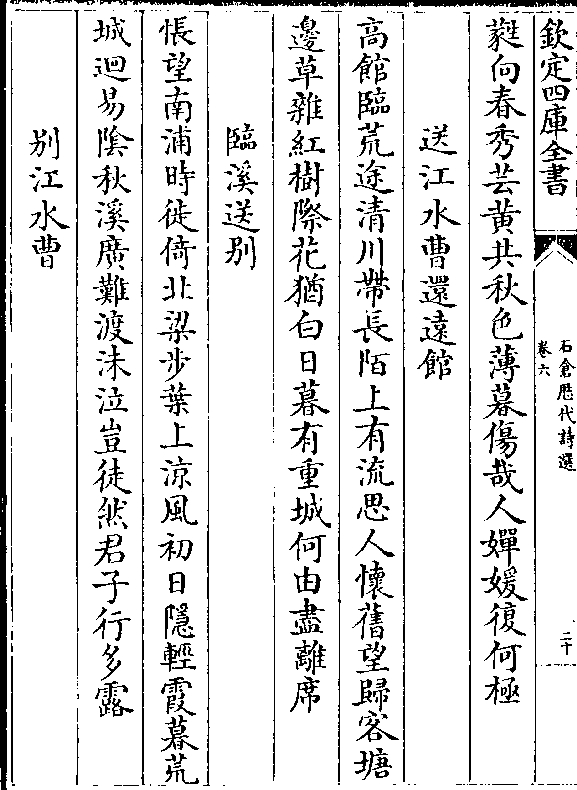 欽定四庫全書
石倉歷代詩選
卷六
二十
蕤向春秀芸黄共秋色薄暮傷哉人嬋媛復何極
送江水曹還遠館
高館臨荒途清川帶長陌上有流思人懷舊望歸客塘
邊草雜紅樹際花猶白日暮有重城何由盡離席
臨溪送别
悵望南浦時徙倚北梁步葉上涼風初日隱輕霞暮荒
城迥易陰秋溪廣難渡沬泣豈徒然君子行多露
别江水曹